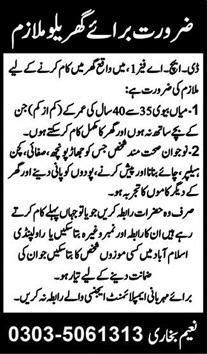 ضرورت برائے گھریلو ملازم
ڈی۔ ایچ۔ اے فیز 1، میں واقع گھر میں کام کرنے کے لیے
ملازم کی ضرورت ہے۔
1- میاں بیوی 35 سے 40 سال کی عمر کے (کم از کم) جن
کے بچے ساتھ نہ ہوں اور گھر کا مکمل کام کر سکتے ہوں۔
2- نوجوان صحت مند شخص جس کو جھاڑ پونچھ، صفائی، کچن
ہیلپر، چائے بنانا اور پیش کرنے، پودوں کو پانی دینے اور گھر
کے دیگر کاموں کا تجربہ ہو۔
صرف وہ حضرات رابطہ کریں جو یا تو جہاں پہلے کام کرتے
رہے ہیں ان کا رابطہ اور نمبر وغیرہ بتا سکیں یا راولپنڈی
اسلام آباد میں کسی موزوں شخص کا بتا سکیں جو ان کی
ضمانت دینے کے لیے تیار ہو۔
برائے مہربانی ایمپلائمنٹ ایجنسی والے رابطہ نہ کریں۔
نعیم بخاری 0303-5061313